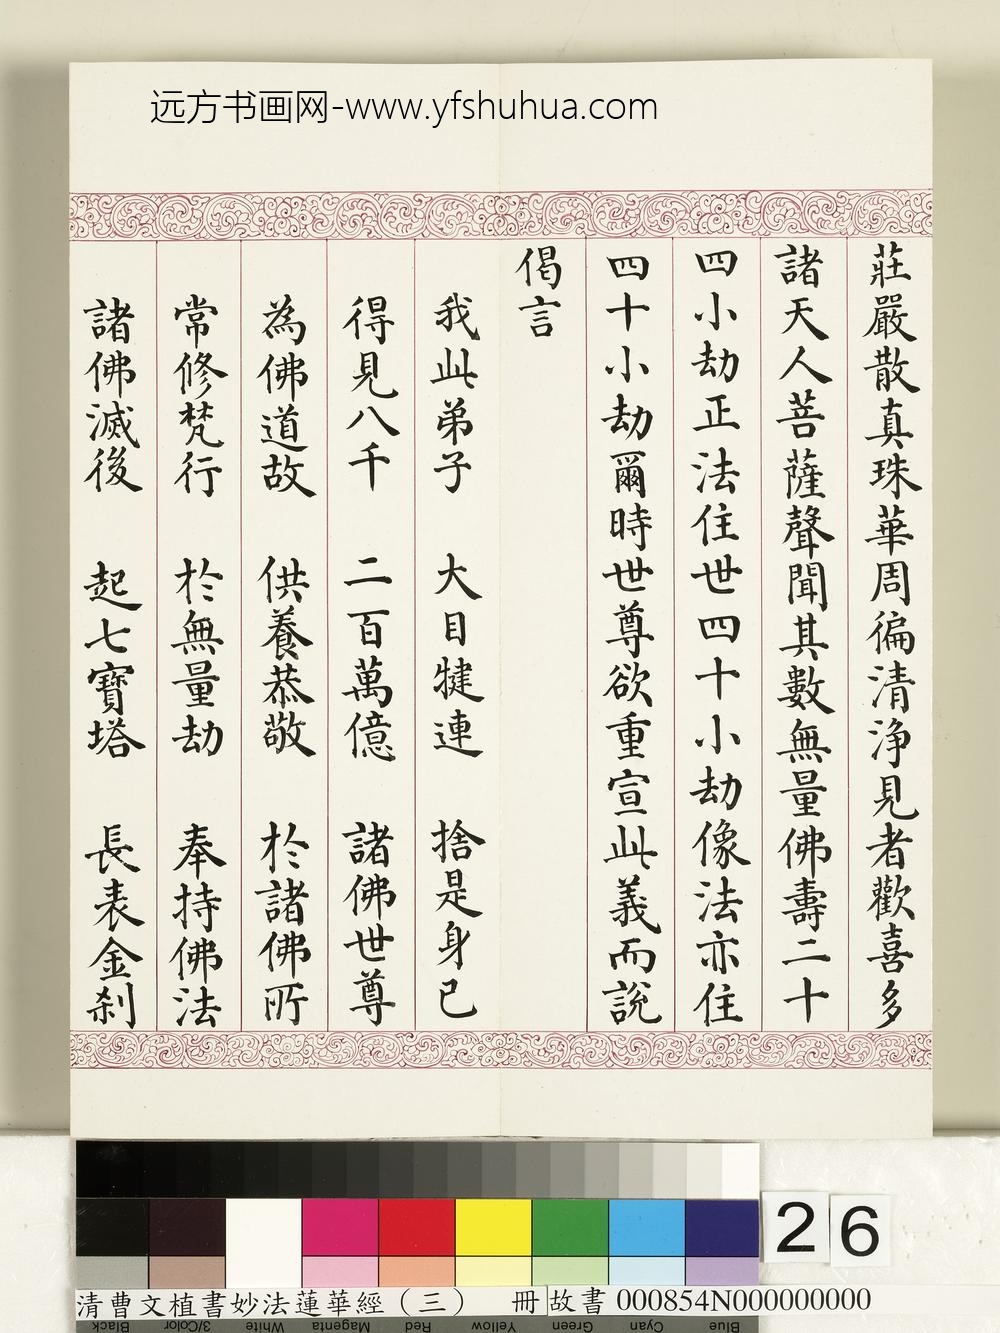 远方书画网-www.yfshuhua.com
莊嚴散真珠華周徧清淨見者歡喜多
諸天人菩薩聲聞其數無量佛壽二十
四小劫正法住世四十小劫像法亦住
四十小劫爾時世尊欲重宣此義而說
偈言
我此弟子 大目犍連 捨是身已
得見八千 二百萬億 諸佛世尊
為佛道故 供養恭敬 於諸佛所
常修梵行 於無量劫 奉持佛法
諸佛滅後 起七寶塔 長表金剎
26
清曹文植書妙法蓮華經（三） 冊 故書 000854N000000000
Black 3/Color White Magenta Red Yellow Green Cyan Blue